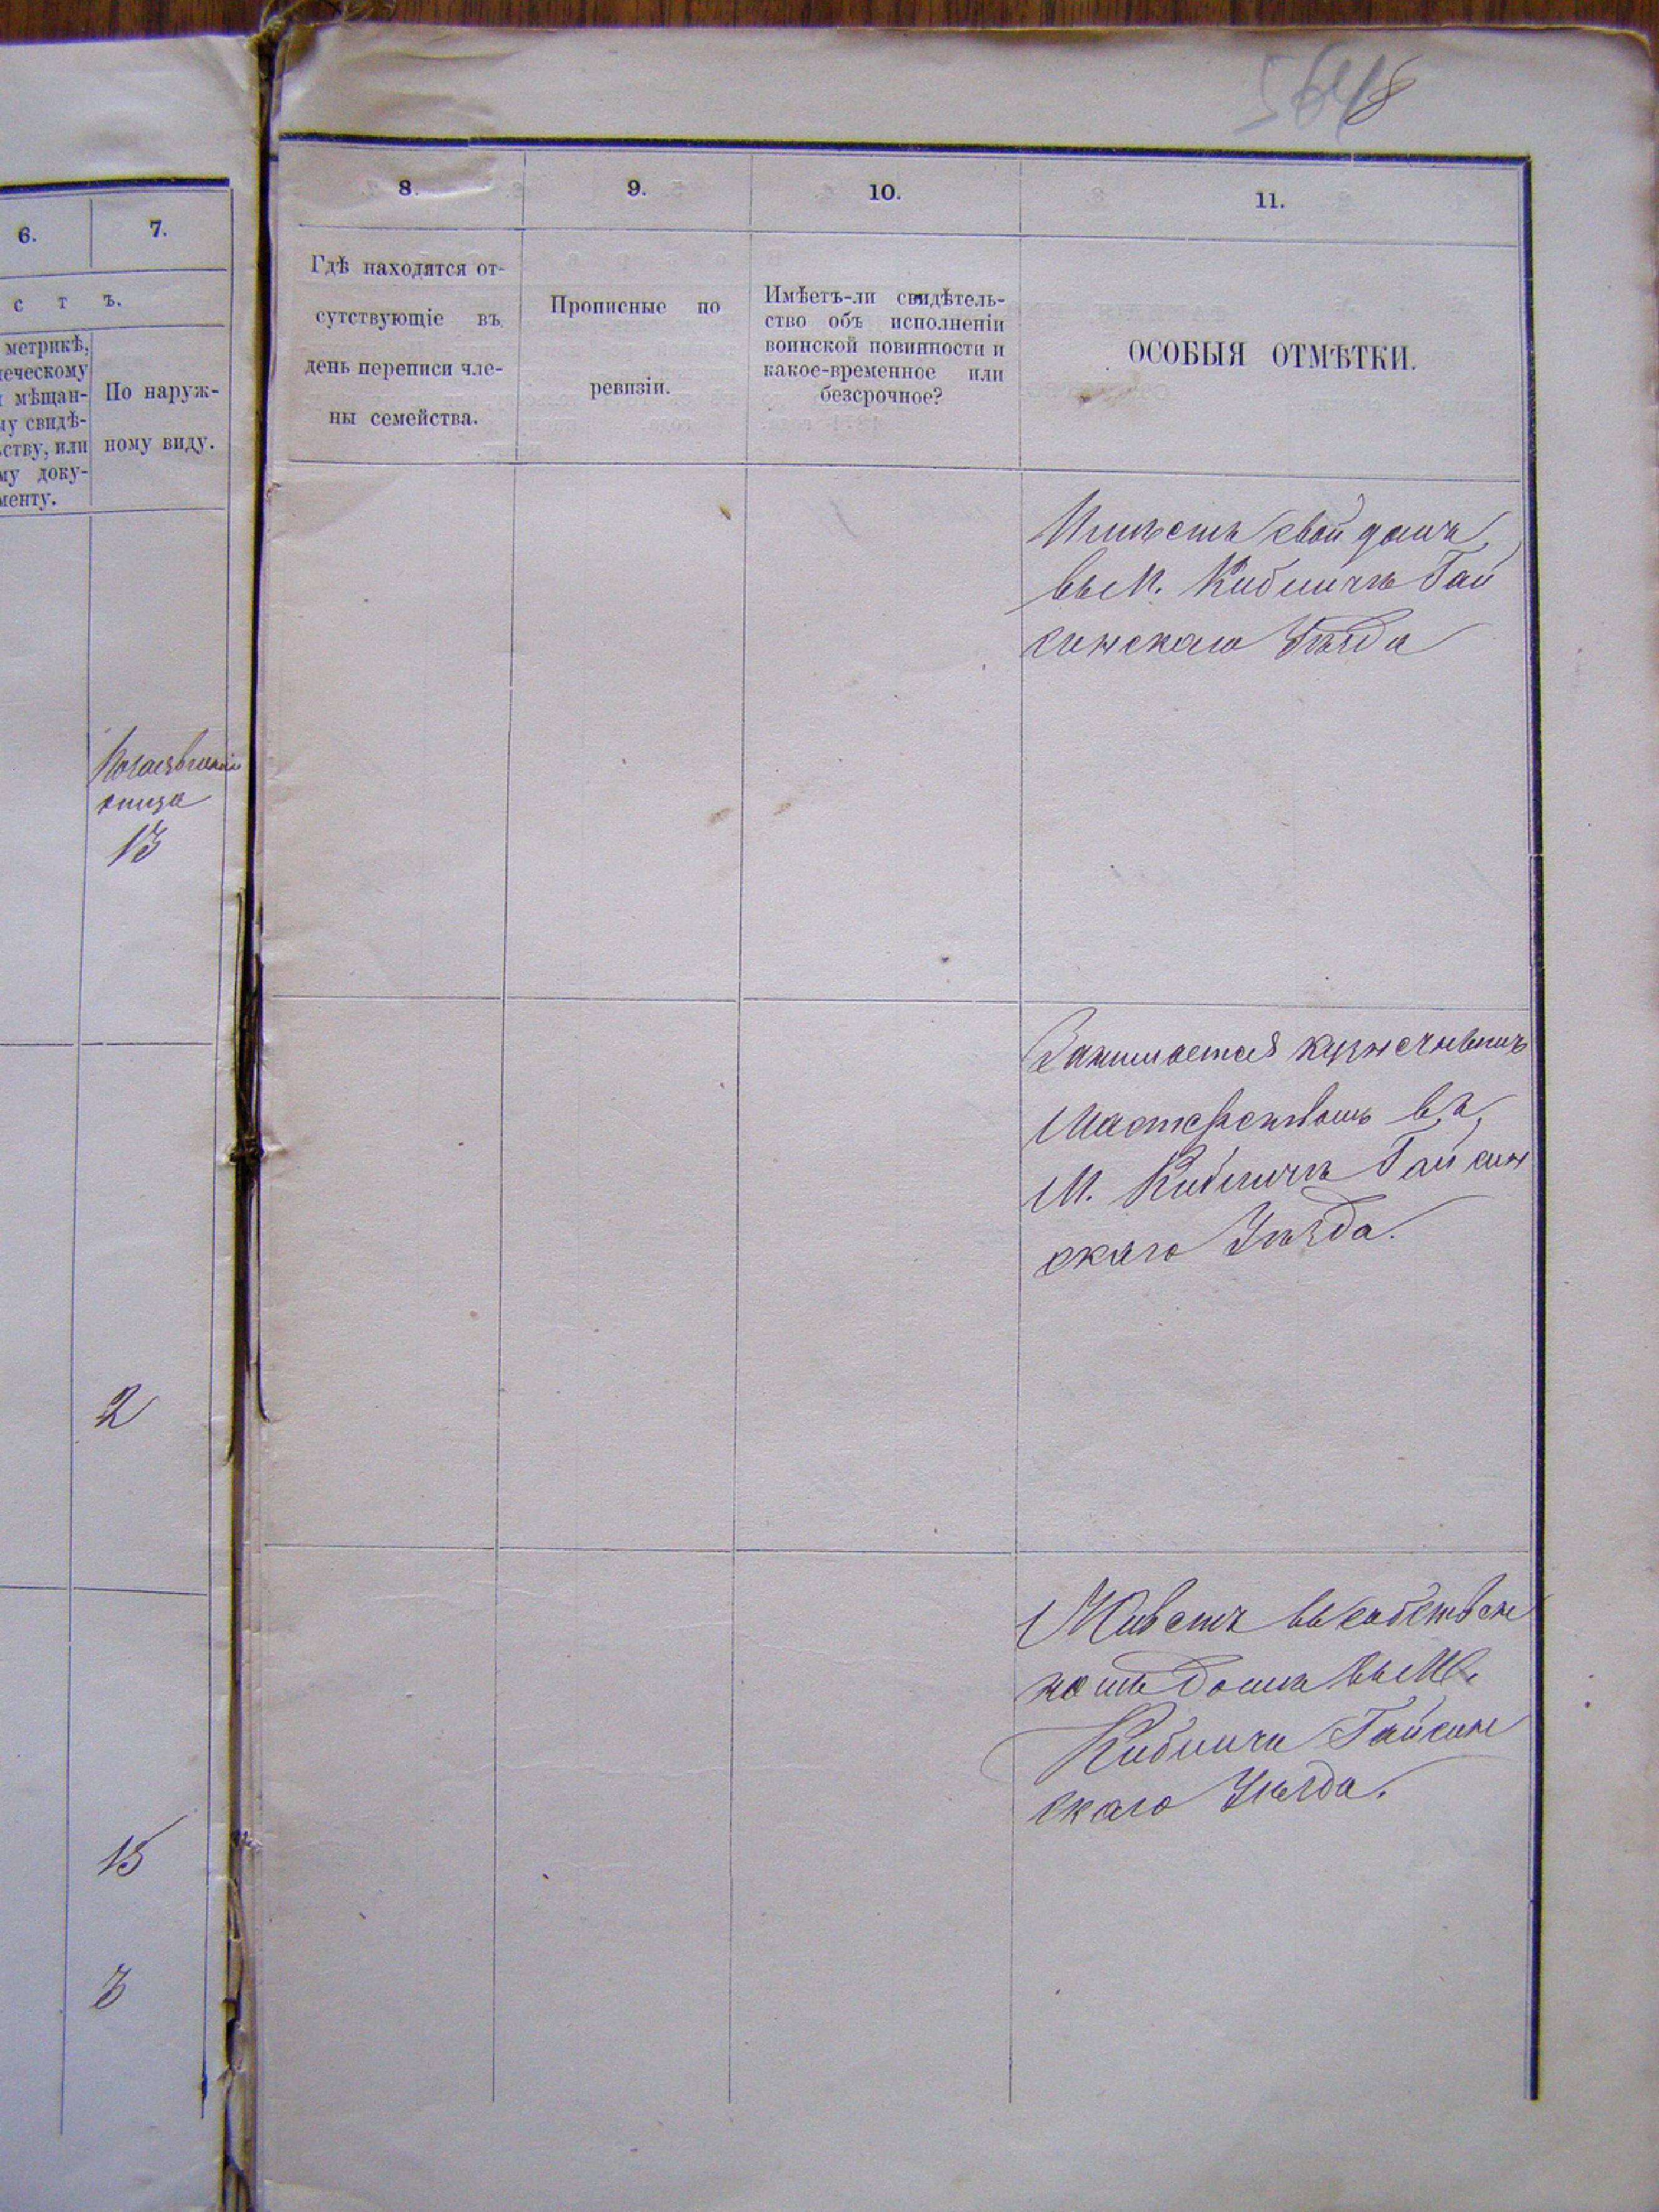 6.
7.
с т ъ.
метрикѣ,
мѣщан-
свидѣ-
или
доку-
По наруж-
ному виду.
13
2
15
3
8.
9.
10.
11.
Гдѣ находятся от-
сутствующіе въ
день переписи чле-
ны семейства.
Прописные по
ревизіи.
Имѣетъ-ли свидѣтель-
ство объ исполненіи
воинской повинности и
какое-временное или
безсрочное?
ОСОБЫЯ ОТМѢТКИ.
Имѣетъ свой домъ
въ М. Кибличѣ Гай
синскаго Уѣзда
Занимается
Мастерствомъ въ
М. Кибличѣ Гайсин
скаго Уѣзда.
Живетъ въ собствен
номъ домѣ въ М.
Кибличи Гайсин
скаго Уѣзда.